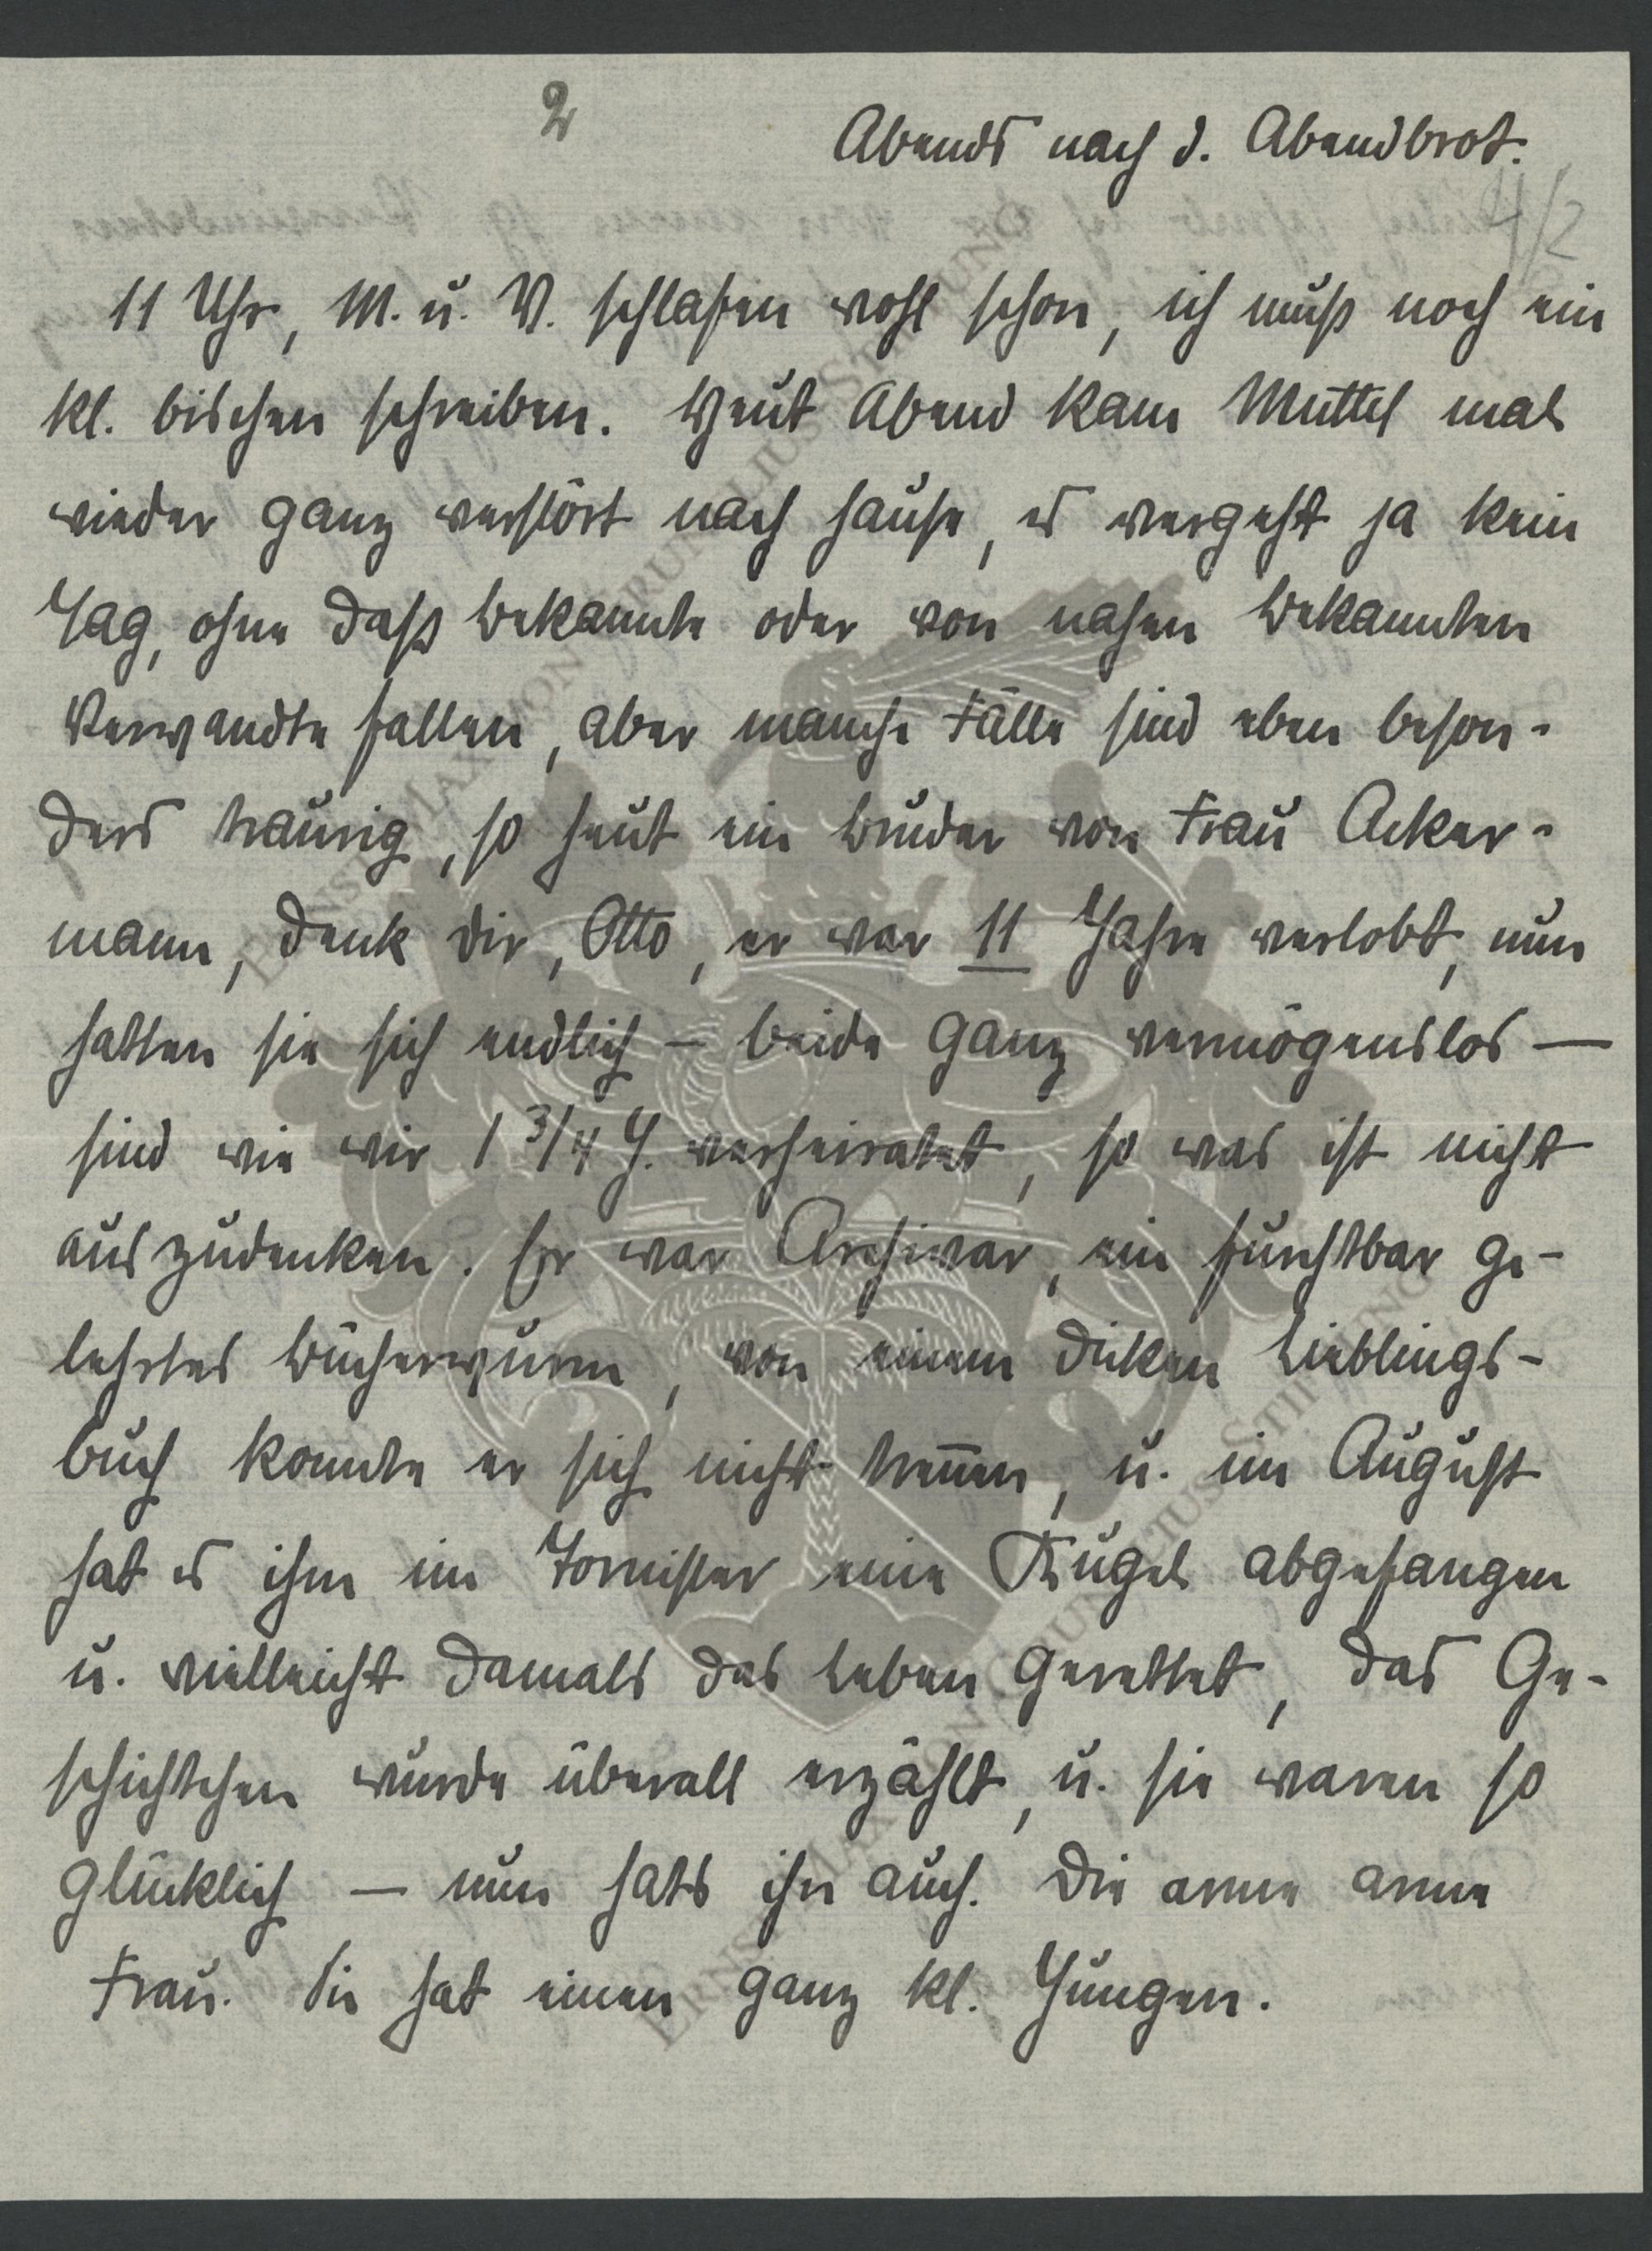 2
Abends nach d. Abendbrot.
4/2
11 Uhr, M. u. V. schlafen wohl schon, ich muß noch ein
kl. bischen schreiben. Heut Abend kam Muttel mal
wieder ganz verstört nach hause, es vergeht ja kein
Tag, ohne daß bekannte oder von nahen bekannten
Verwandte fallen, aber manche Fälle sind eben beson-
ders traurig, so heut ein bruder von Frau Acker-
mann, denk dir, Otto, er war 11 Jahre verlobt, nun
hatten sie sich endlich – beide ganz vermögenslos —
sind wie wir 1 3/4 J. verheiratet, so was ist nicht
auszudenken. Er war Archivar, ein furchtbar ge-
lehrtes bücherwurm, von einem dicken Lieblings-
buch konnte er sich nicht trennen, u. im August
hat es ihm im Tornister eine Kugel abgefangen
u. vielleicht damals das Leben gerettet, das Ge-
schichtchen wurde überall erzählt, u. sie waren so
glücklich — nun hats ihn auch. Die arme arme
Frau. Sie hat einen ganz kl. Jungen.
ERNST MAX VON GRUNELIUS STIFTUNG
ERNST MAX VON GRUNELIUS STIFTUNG